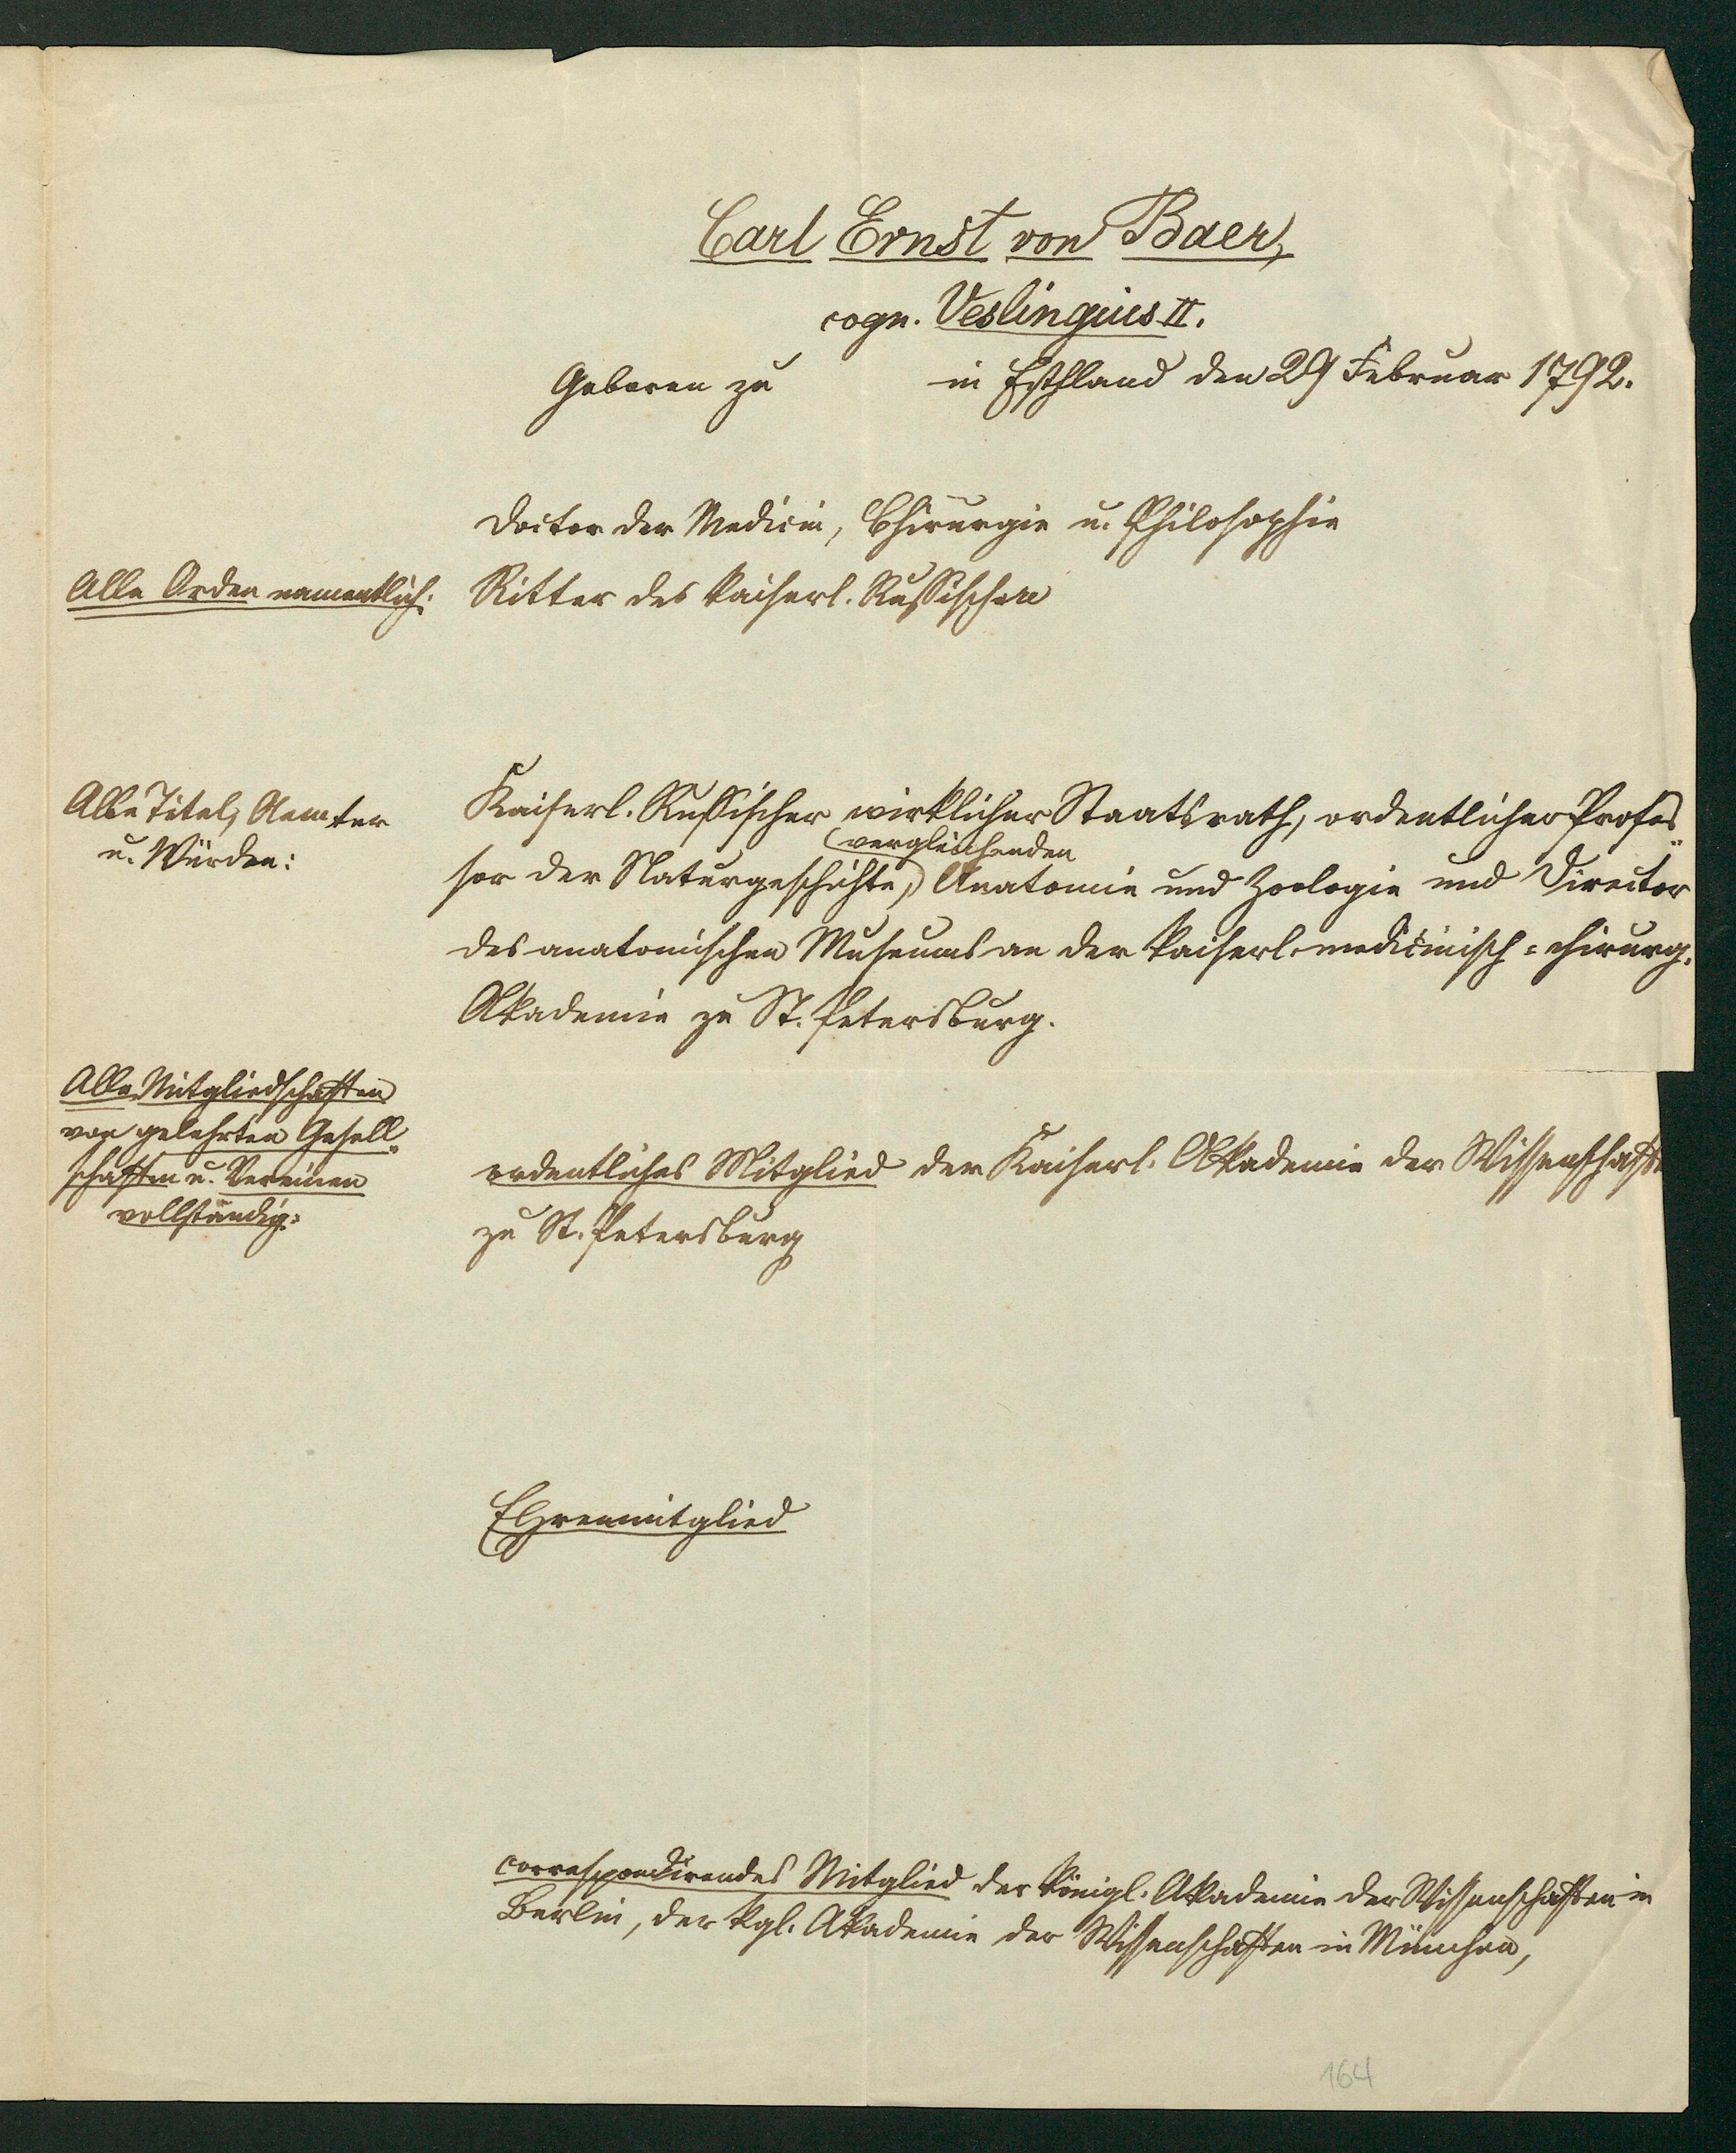 Carl Ernst von Baer,
cogn. Veslingius II.
Geboren zu in Esthland den 29 Februar 1792.
Doctor der Medicin, Chirurgie u. Philosophie
Alle Orden namentlich:
Ritter des kaiserl. Russischen
Alle Titel, Aemter
u. Würden:
Kaiserl. Russischer wirklicher Staatsrath, ordentlicher Profes-
vergleichenden
sor der Naturgeschichte, Anatomie und Zoologie und Director
des anatomischen Museums an der kaiserl. medicinisch-chirurg.
Akademie zu St. Petersburg.
Alle Mitgliedschaften
von gelehrten Gesell-
schaften u. Vereinen
vollständig:
ordentliches Mitglied der Kaiserl. Akademie der Wissenschafte
zu St. Petersburg
Ehrenmitglied
correspondirendes Mitglied der königl. Akademie der Wissenschaften in
Berlin, der kgl. Akademie der Wissenschaften in München,
164